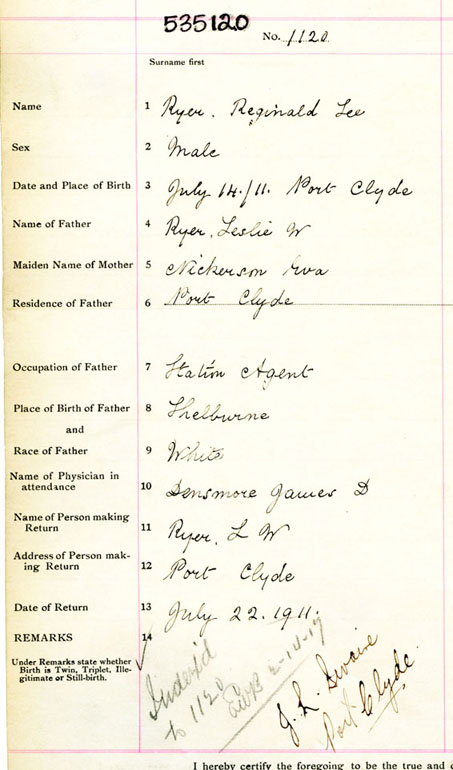 535120
No. 1120
Surname first
Name 1 Ryer, Reginald Lee
Sex 2 Male
Date and Place of Birth 3 July 14/11. Port Clyde
Name of Father 4 Ryer, Leslie W
Maiden Name of Mother 5 Nickerson Eva
Residence of Father 6 Port Clyde
Occupation of Father 7 Station Agent
Place of Birth of Father 8 Shelburne
and
Race of Father 9 White
Name of Physician in
attendance 10 Densmore James D
Name of Person making
Return 11 Ryer, L W
Address of Person mak-
ing Return 12 Port Clyde
Date of Return 13 July 22. 1911.
REMARKS 14
Under Remarks state whether
Birth is Twin, Triplet, Ille-
gitimate or Still-birth.
Indexed
to 1120
2-14-19
J. L. Swaine
Port Clyde.
I hereby certify the foregoing to be the true and